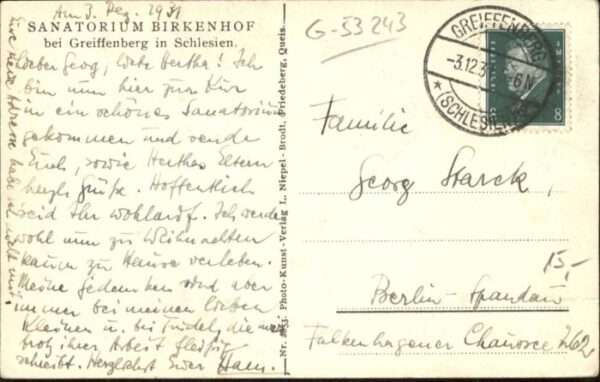 Am 3. Dez. 1931
SANATORIUM BIRKENHOF
bei Greiffenberg in Schlesien.
Lieber Georg, liebe Hertha! Ich
bin nun hier zur Kur
in ein schönes Sanatorium
gekommen und sende
Euch, sowie Herthas Eltern
herzl. Grüße. Hoffentlich
seid Ihr wohlauf. Ich werde
wohl nun zu Weihnachten
kaum zu Hause verleben.
Meine Gedanken sind aber
immer bei meinen lieben
Kleinen u. bei Trudel, die
trotz ihrer Arbeit fleißig
schreibt. Herzlichst Euer Hans.
Eure neue Adresse habe ich
Nr. Photo-Kunst-Verlag L. Niepel-Brodt, Friedeberg, Queis.
G-53243
GREIFFENBERG
-3.12.3
6N
(SCHLESIEN)
8
Familie
Georg Starck,
15,-
Berlin-Spandau
Falkenhagener Chaussee 262